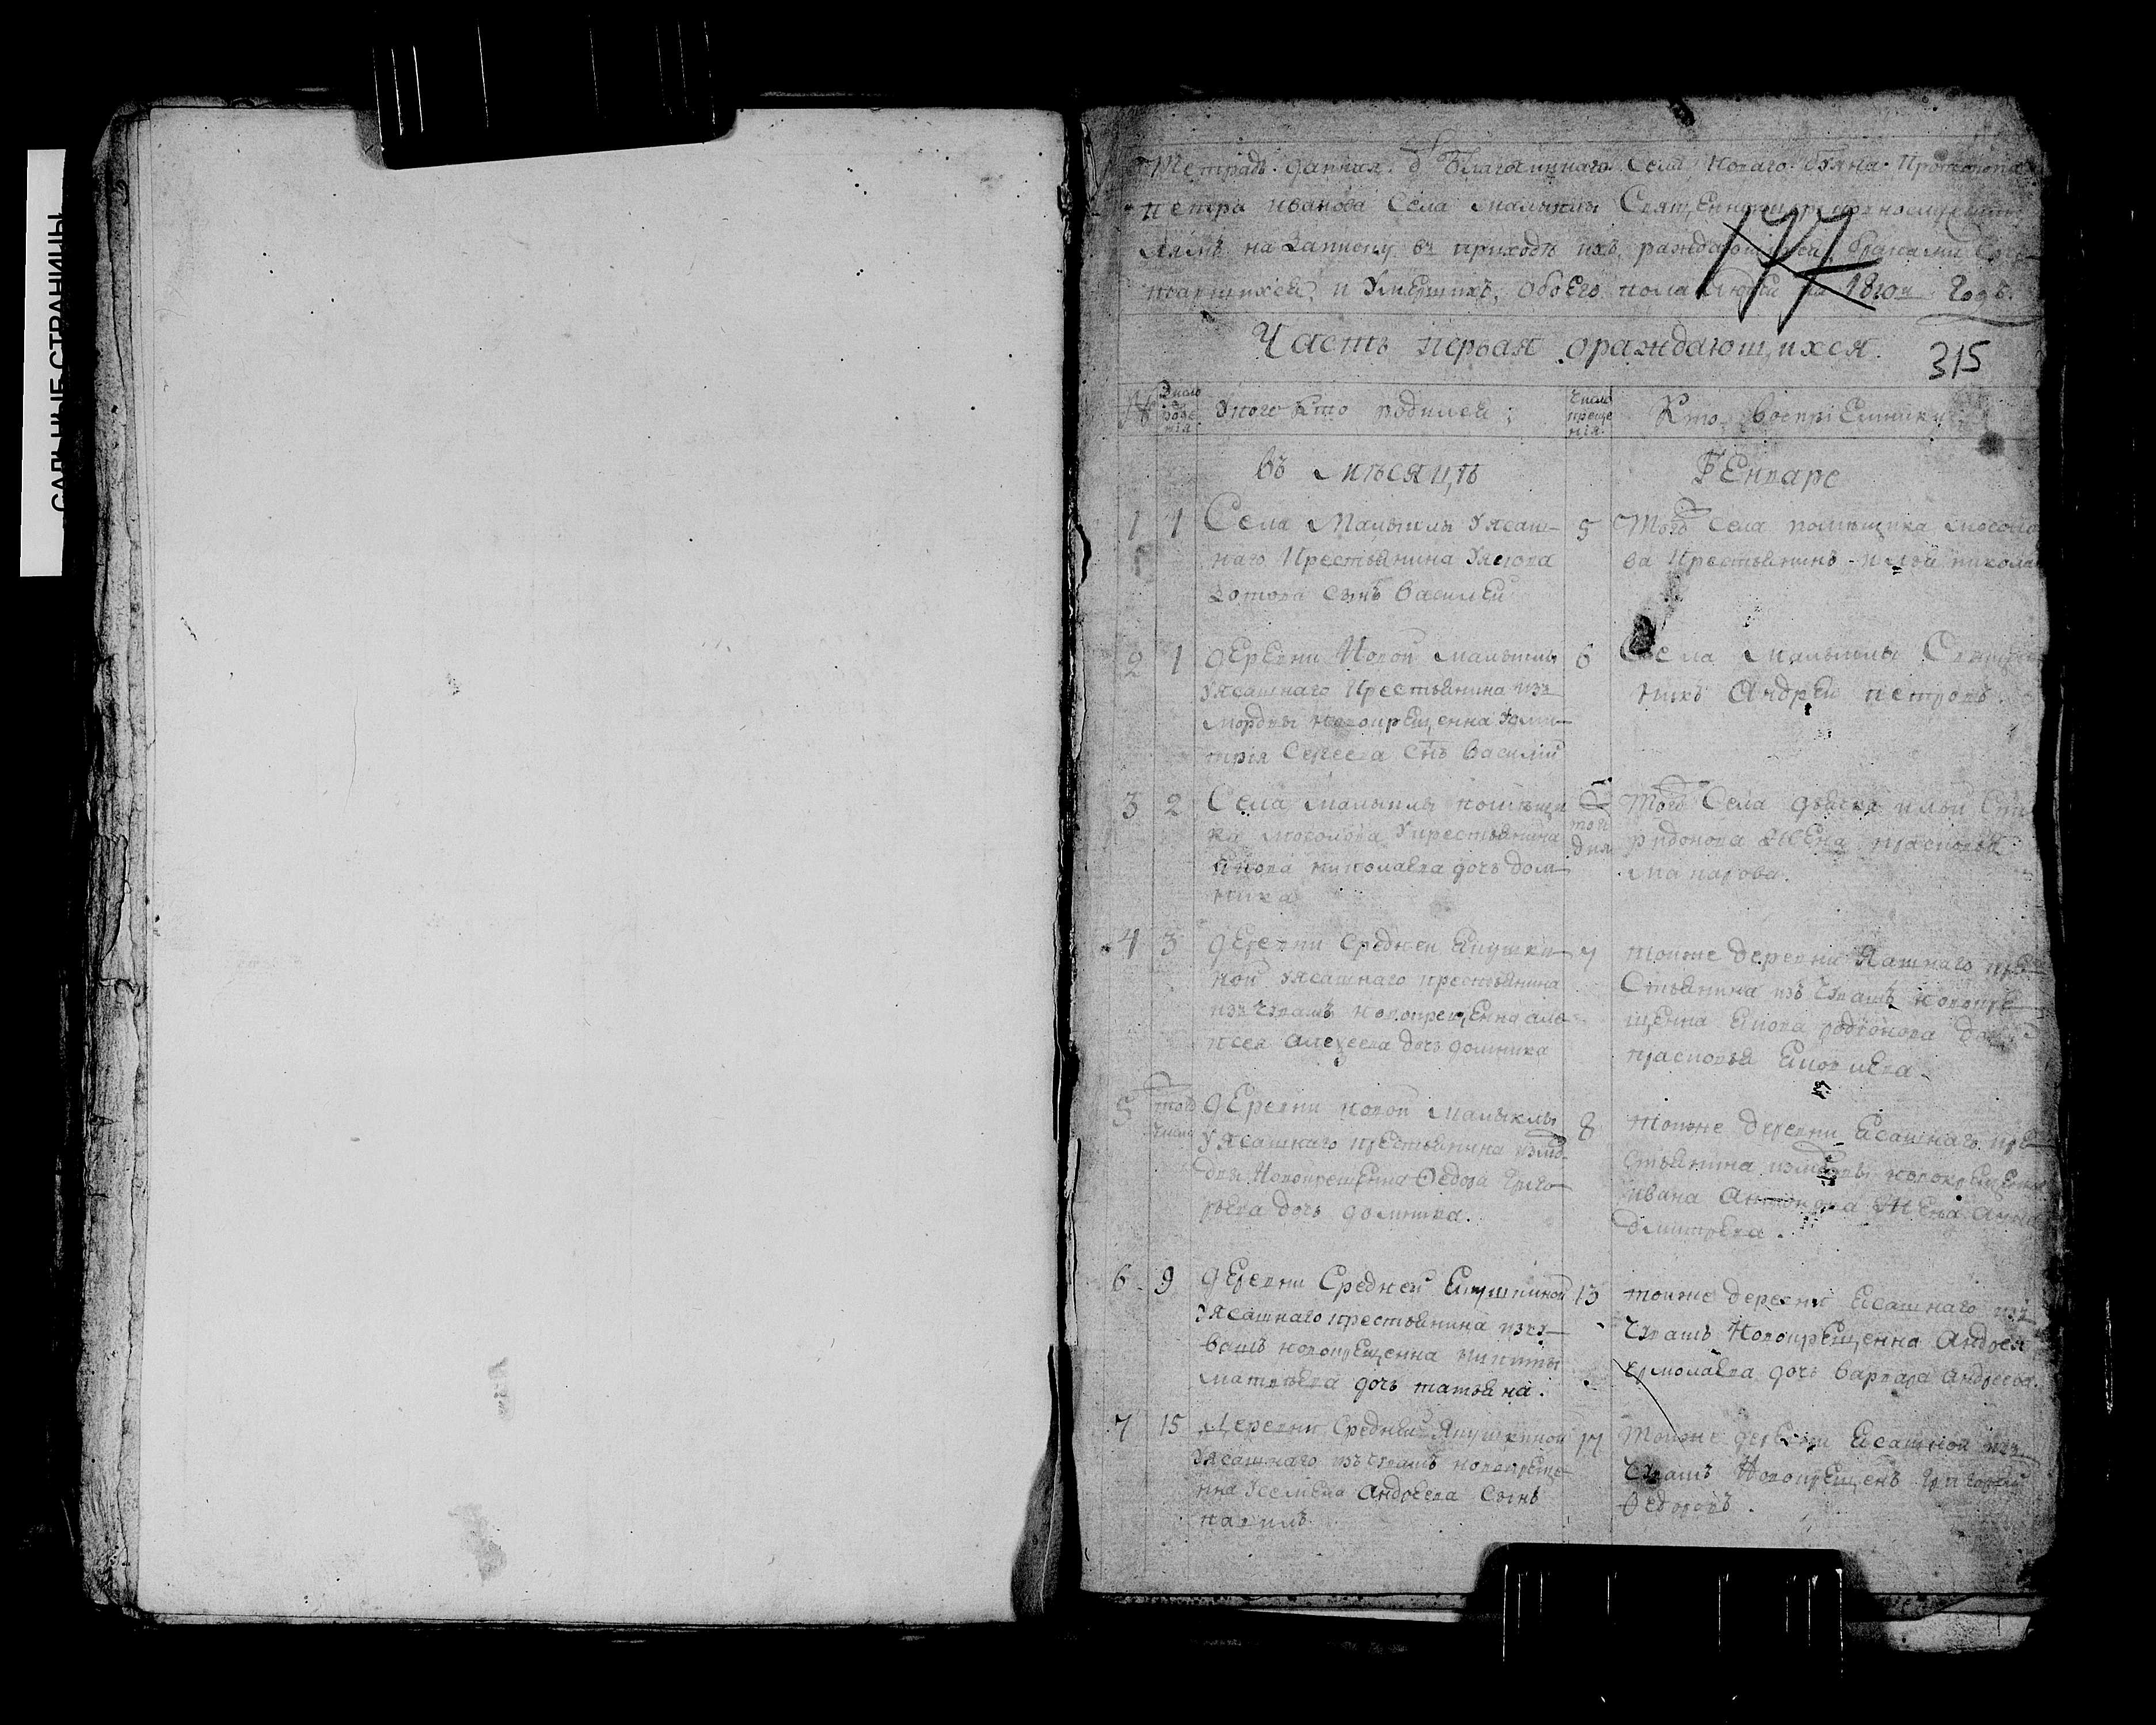 САЛЬНЫЕ СТРАНИЦЫ
Тетрадь данная Благочиннаго Села Новаго Буяна Протопопа
Петра иванова Села малыклы
на записку въ приходѣ ихъ раждающихся бракомъ
и умершихъ, обоего пола людей на 1810й Годъ.
177
Часть первая ораждающихся.
315
№
Число рожденія
У кого кто родился;
Число крещенія
Кто воспріемники;
въ мѣсяцѣ
Генваре
1 1 Села Малыклы Уясаш-
наго Крестьянина
Зотова сынъ василей
5 Тогожъ Села помѣщика
ва Крестьянинъ
2 1 деревни Новой малыклы
Уясашнаго Крестьянина изъ
мордвы новокрещенна дми-
трія Сергеева Снъ василій
6 Села Малыклы
никъ Андрей петровъ.
3 2 Села малыклы помѣщи
ка мосолова Укрестьянина
николаева дочь дом-
ника
того дня
Тогожъ Села дьячка Спи
ридонова жена прасковья
макарова.
4 3 деревни средней Якушки
ной Уясашнаго крестьянина
изъ Чувашъ новокрещенна але
ксея Алексеева дочь домника
7 тойже деревни Ясашнаго кре
стьянина изъ Чувашъ новокре
щенна Якова родіонова дочь
прасковья Яковлева
5 того числа деревни новой Малыклы
Уясашнаго крестьянина измор
двы Новокрещенна Ѳедора Григо
рьева дочь домника.
8 тойже деревни Ясашнаго кре
стьянина измордвы новокрещенна
ивана Антонова жена Анна
дмитрева.
6 9 деревни Средней Якушкиной
Уясашнаго крестьянина изчу
вашъ новокрещенна никиты
матвѣева дочь татьяна.
13 тойже деревни Ясашнаго изъ
Чувашъ Новокрещенна Андрея
ермолаева дочь варвара андреева.
7 15 Деревни Средней Якушкиной
Уясашнаго изъчувашъ новокреще
нна Андреева Сынъ
17 Тойже деревни Ясашной изъ
Чувашъ Новокрещенъ Григорей
Ѳедоровъ.